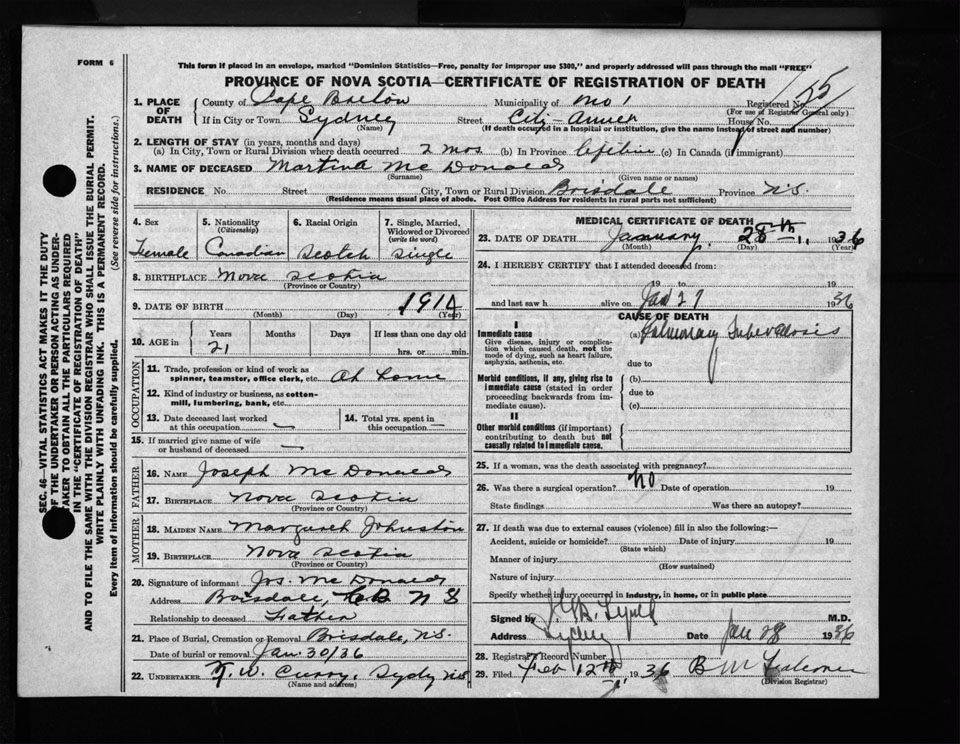 FORM 6
This form if placed in an envelope, marked "Dominion Statistics—Free, penalty for improper use $300," and properly addressed will pass through the mail "FREE"
PROVINCE OF NOVA SCOTIA—CERTIFICATE OF REGISTRATION OF DEATH
1. PLACE OF DEATH { County of Cape Breton Municipality of No 1 Registered No. 55
(For use of Registrar General only)
If in City or Town Sydney Street City Annex House No.
(Name) (If death occurred in a hospital or institution, give the name instead of street and number)
2. LENGTH OF STAY (in years, months and days)
(a) In City, Town or Rural Division where death occurred 2 mos. (b) In Province lifetime (c) In Canada (if immigrant)
3. NAME OF DECEASED Martina Mc Donald
(Surname) (Given name or names)
RESIDENCE No Street City, Town or Rural Division Boisdale Province N.S.
(Residence means usual place of abode. Post Office Address for residents in rural parts not sufficient)
4. Sex 5. Nationality 6. Racial Origin 7. Single, Married,
(Citizenship) Widowed or Divorced
(write the word)
Female Canadian Scotch Single
8. BIRTHPLACE Nova Scotia
(Province or Country)
9. DATE OF BIRTH 1914
(Month) (Day) (Year)
10. AGE in Years Months Days If less than one day old
21 hrs. or min.
OCCUPATION
11. Trade, profession or kind of work as
spinner, teamster, office clerk, etc. At home
12. Kind of industry or business, as cotton-
mill, lumbering, bank, etc.
13. Date deceased last worked at this occupation
14. Total yrs. spent in this occupation —
15. If married give name of wife
or husband of deceased
FATHER
16. NAME Joseph Mc Donald
17. BIRTHPLACE Nova Scotia
(Province or Country)
MOTHER
18. MAIDEN NAME Margaret Johnston
19. BIRTHPLACE Nova Scotia
(Province or Country)
20. Signature of informant Jos. Mc Donald
Address Boisdale, C.B. N S
Relationship to deceased Father
21. Place of Burial, Cremation or Removal Boisdale, N.S.
Date of burial or removal Jan. 30/36
22. UNDERTAKER W. Curry, Sydy N.S.
(Name and address)
MEDICAL CERTIFICATE OF DEATH
23. DATE OF DEATH January 28th 1936
(Month) (Day) (Year)
24. I HEREBY CERTIFY that I attended deceased from:
19 to 19
and last saw h alive on Jan 27 1936
CAUSE OF DEATH
I
Immediate cause
Give disease, injury or complica-
tion which caused death, not the
mode of dying, such as heart failure,
asphyxia, asthenia, etc.
(a) Pulmonary Tuberculosis
due to
Morbid conditions, if any, giving rise to
immediate cause (stated in order
proceeding backwards from im-
mediate cause).
(b)
due to
(c)
II
Other morbid conditions (if important)
contributing to death but not
causally related to immediate cause.
25. If a woman, was the death associated with pregnancy?
26. Was there a surgical operation? No Date of operation 19
State findings Was there an autopsy?
27. If death was due to external causes (violence) fill in also the following:—
Accident, suicide or homicide? Date of injury 19
(State which)
Manner of injury
(How sustained)
Nature of injury
Specify whether injury occurred in Industry, in home, or in public place
Signed by M.D.
Address Sydney Date Jan 28 1936
28. Registrar Record Number
29. Filed Feb 12th 1936 B M
(Division Registrar)
SEC. 46—VITAL STATISTICS ACT MAKES IT THE DUTY
OF THE UNDERTAKER OR PERSON ACTING AS UNDER-
TAKER TO OBTAIN ALL THE PARTICULARS REQUIRED
IN THE "CERTIFICATE OF REGISTRATION OF DEATH"
AND TO FILE THE SAME WITH THE DIVISION REGISTRAR WHO SHALL ISSUE THE BURIAL PERMIT.
WRITE PLAINLY WITH UNFADING INK. THIS IS A PERMANENT RECORD.
Every item of Information should be carefully supplied. (See reverse side for instructions.)